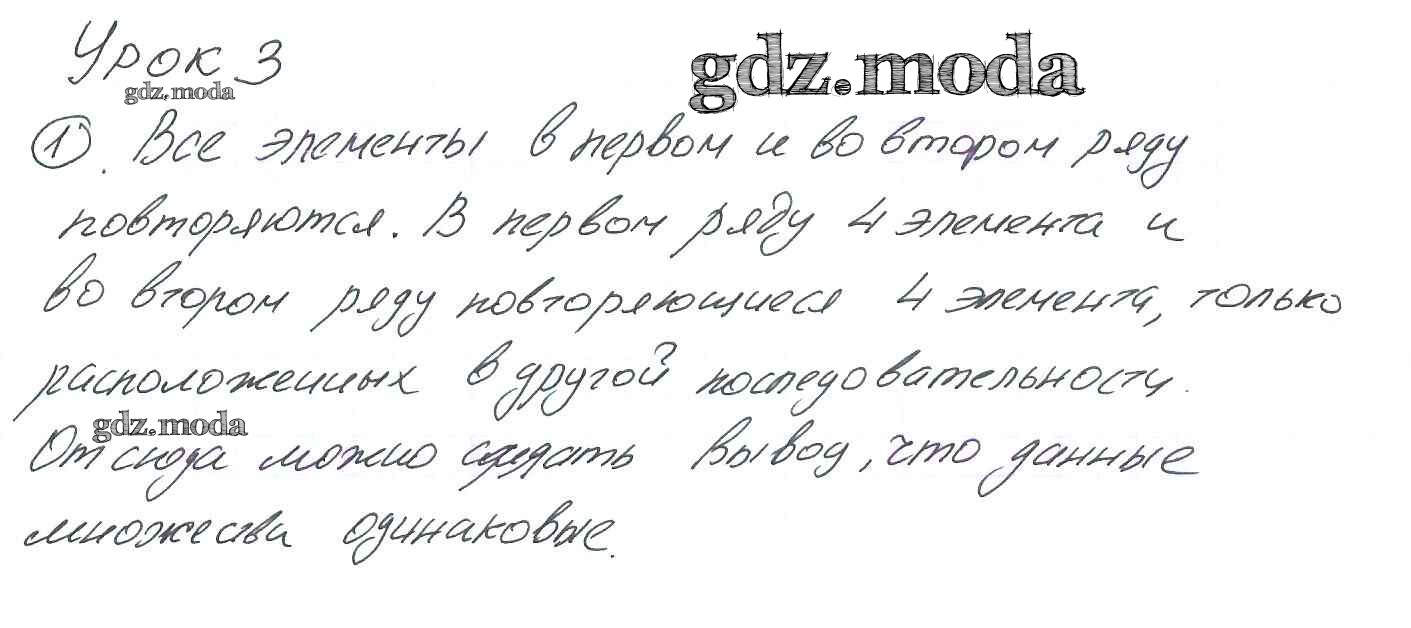 Урок 3
gdz.moda
gdz.moda
1). Все элементы в первом и во втором ряду
повторяются. В первом ряду 4 элемента и
во втором ряду повторяющиеся 4 элемента, только
расположенных в другой последовательности.
gdz.moda
Отсюда можно сделать вывод, что данные
множества одинаковые.